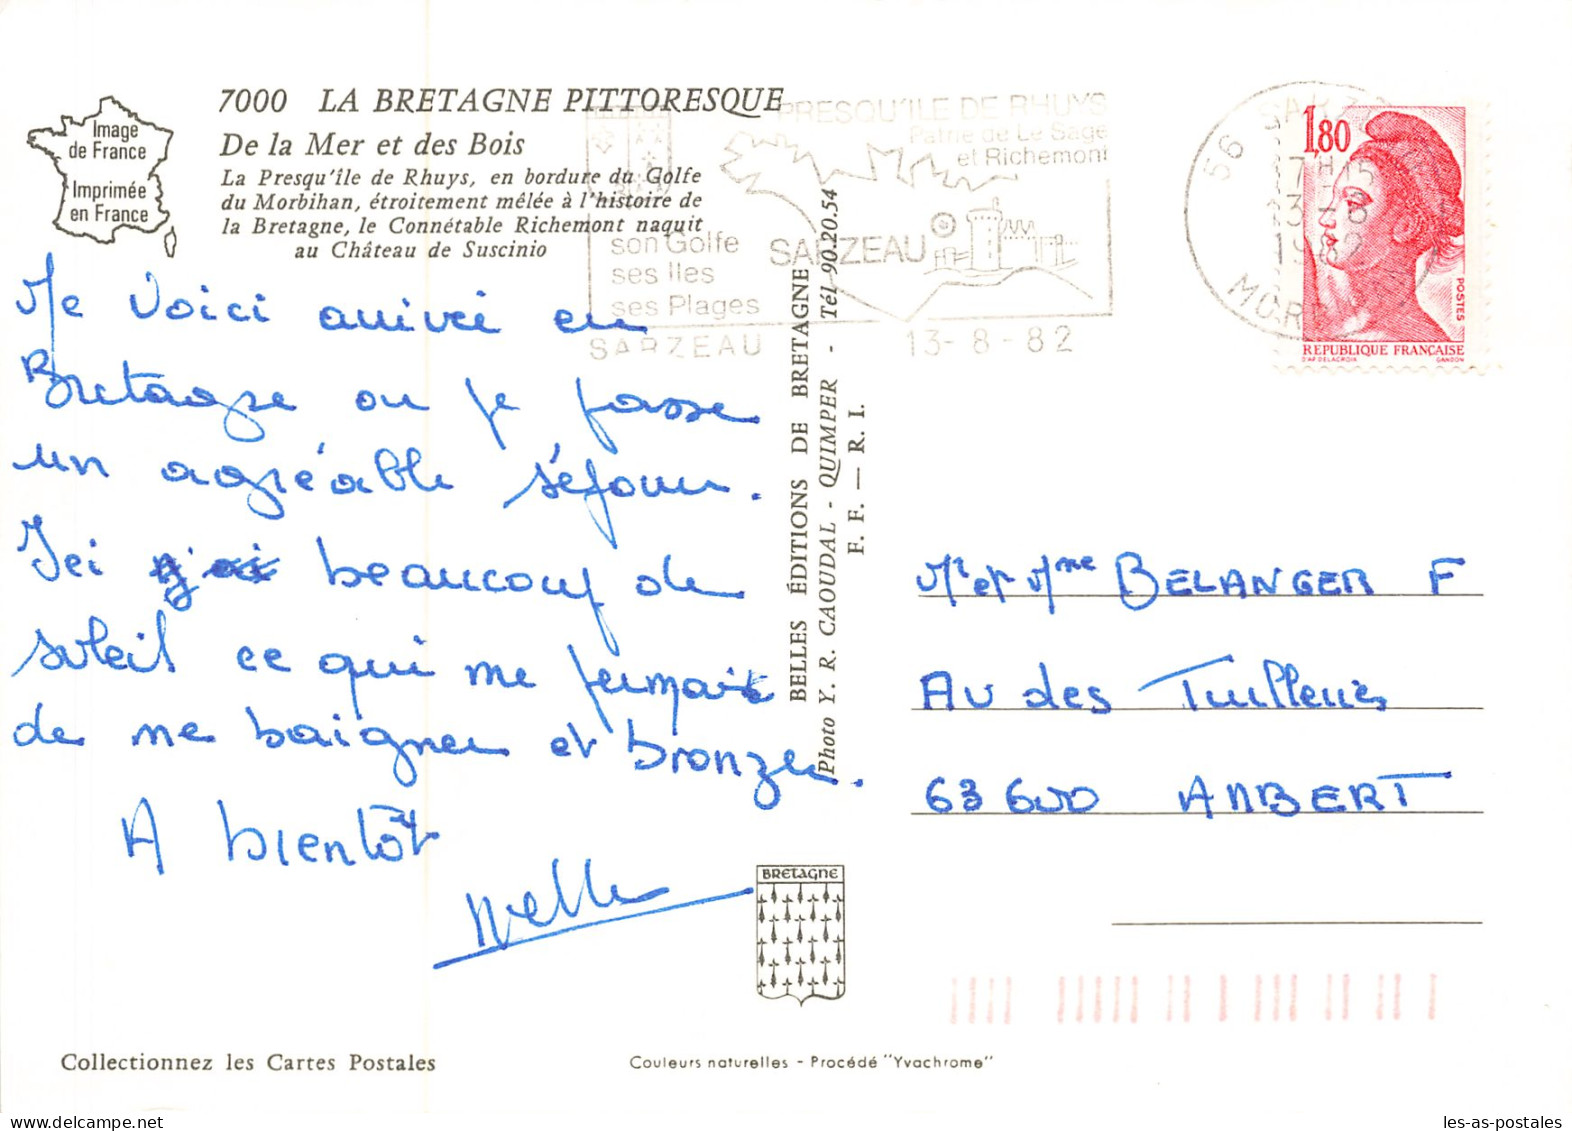 7000 LA BRETAGNE PITTORESQUE
De la Mer et des Bois
La Presqu'île de Rhuys, en bordure du Golfe
du Morbihan, étroitement mêlée à l'histoire de
la Bretagne, le Connétable Richemont naquit
au Château de Suscinio
Image
de France
Imprimée
en France
PRESQU'ILE DE RHUYS
Patrie de Le Sage
et Richemont
son Golfe
ses Iles
ses Plages
SARZEAU
SARZEAU
13-8-82
56 SARZ
17H15
13-8
1982
MOR
1,80
POSTES
REPUBLIQUE FRANÇAISE
D'AP. DELACROIX GANDON
Me Voici arrivée en
Bretagne ou je passe
un agréable séjour.
Ici j'ai beaucoup de
soleil ce qui me permais
de me baigner et bronzer.
A bientôt
Nelly
BELLES ÉDITIONS DE BRETAGNE
Photo Y. R. CAOUDAL - QUIMPER - Tél 90.20.54
F. F. — R. I.
Mr et Mme BELANGER F
Av des Tuilleries
63600 AMBERT
BRETAGNE
Collectionnez les Cartes Postales
Couleurs naturelles - Procédé "Yvachrome"
les-as-postales